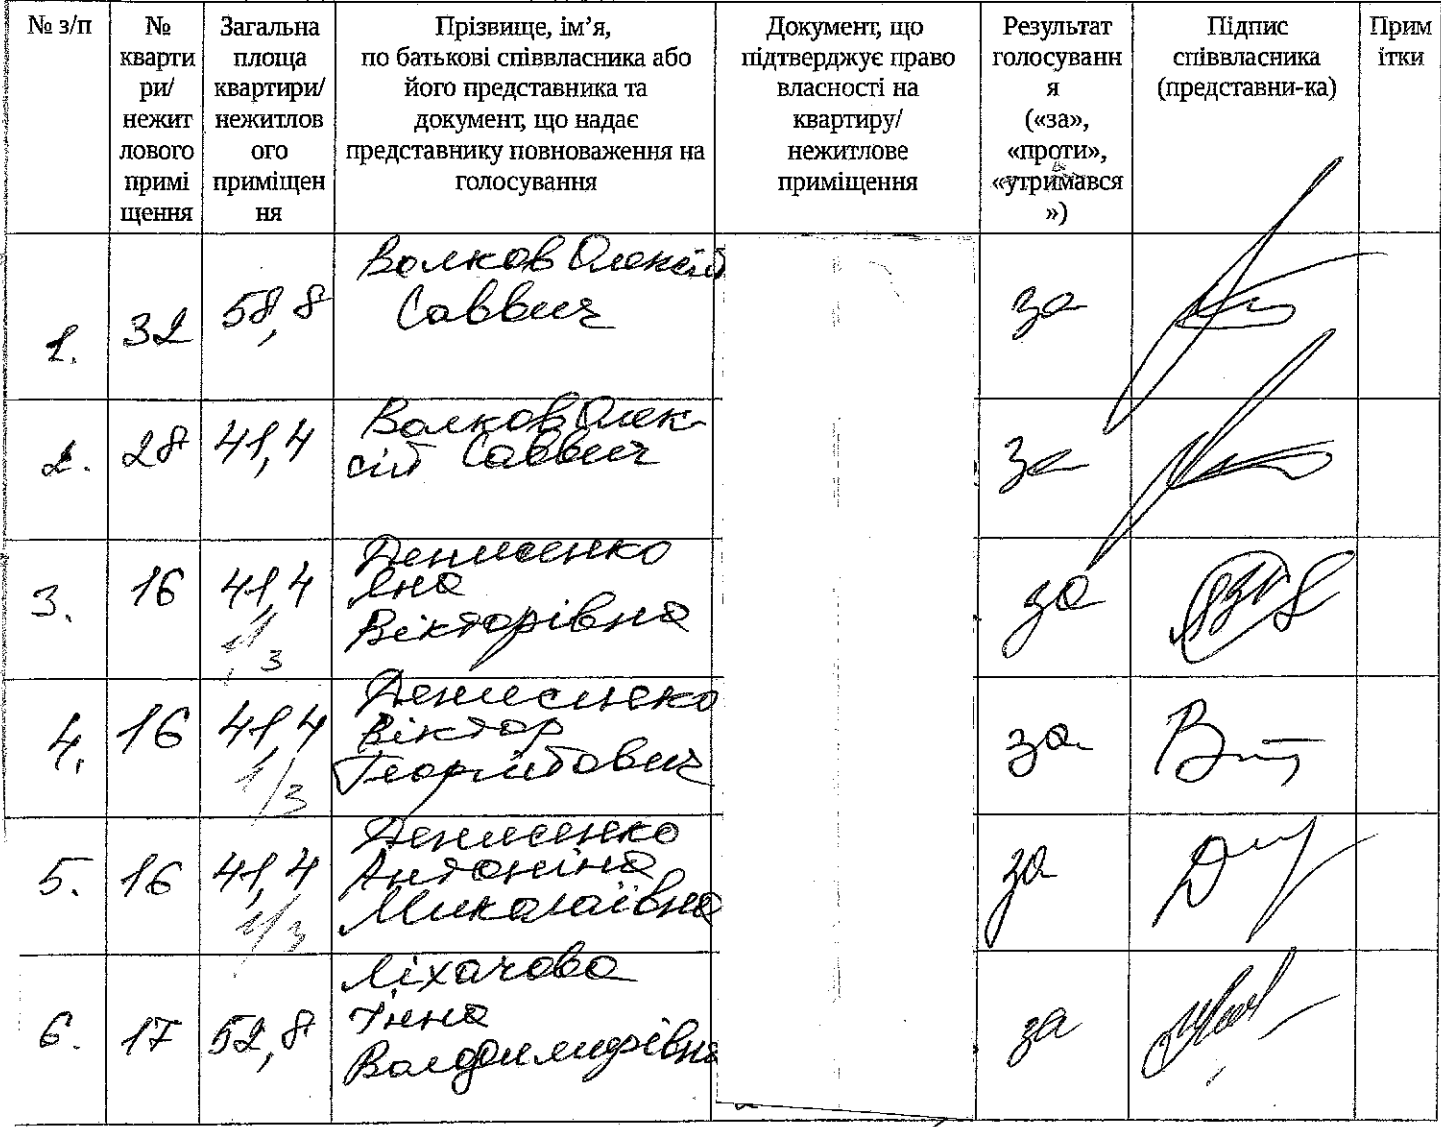 № з/п
№
кварти
ри/
нежит
лового
примі
щення
Загальна
площа
квартири/
нежитлов
ого
приміщен
ня
Прізвище, ім’я,
по батькові співвласника або
його представника та
документ, що надає
представнику повноваження на
голосування
Документ, що
підтверджує право
власності на
квартиру/
нежитлове
приміщення
Результат
голосуванн
я
(«за»,
«проти»,
«утримався
»)
Підпис
співвласника
(представни-ка)
Прим
ітки
1.
32
58,8
Волков Олексій
Саввич
за
2.
28
41,4
Волков Олек-
сій Саввич
за
3.
16
41,4
1/3
Денисенко
Яна
Вікторівна
за
4.
16
41,4
1/3
Денисенко
Віктор
Георгійович
за
5.
16
41,4
1/3
Денисенко
Антоніна
Миколаївна
за
6.
17
52,8
Ліхачова
Інна
Володимирівна
за